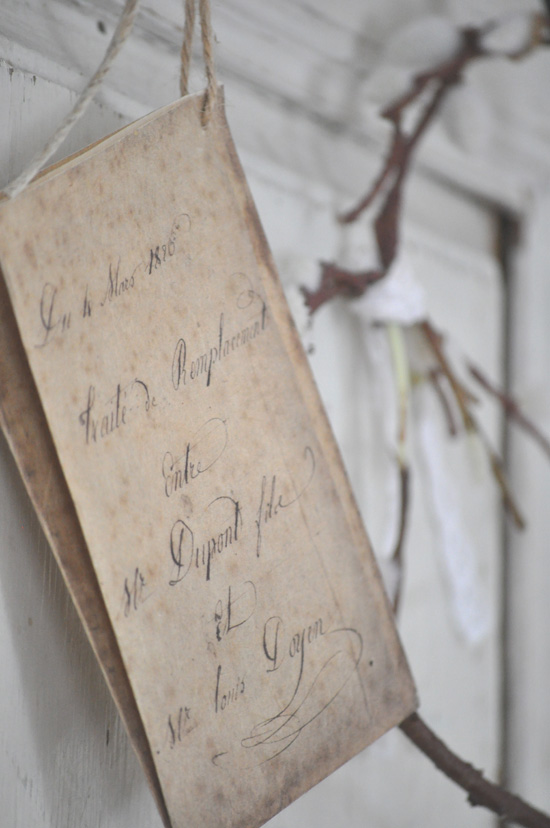 Du 4 Mars
traité de Remplacement
Entre
Mr Dupont fils
Et
Mr Louis Doyen